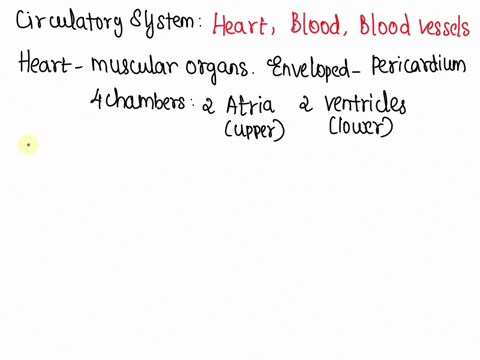 Circulatory System: Heart, Blood, Blood vessels
Heart - muscular organs. Enveloped - Pericardium
4 chambers: 2 Atria 2 ventricles
(upper) (lower)